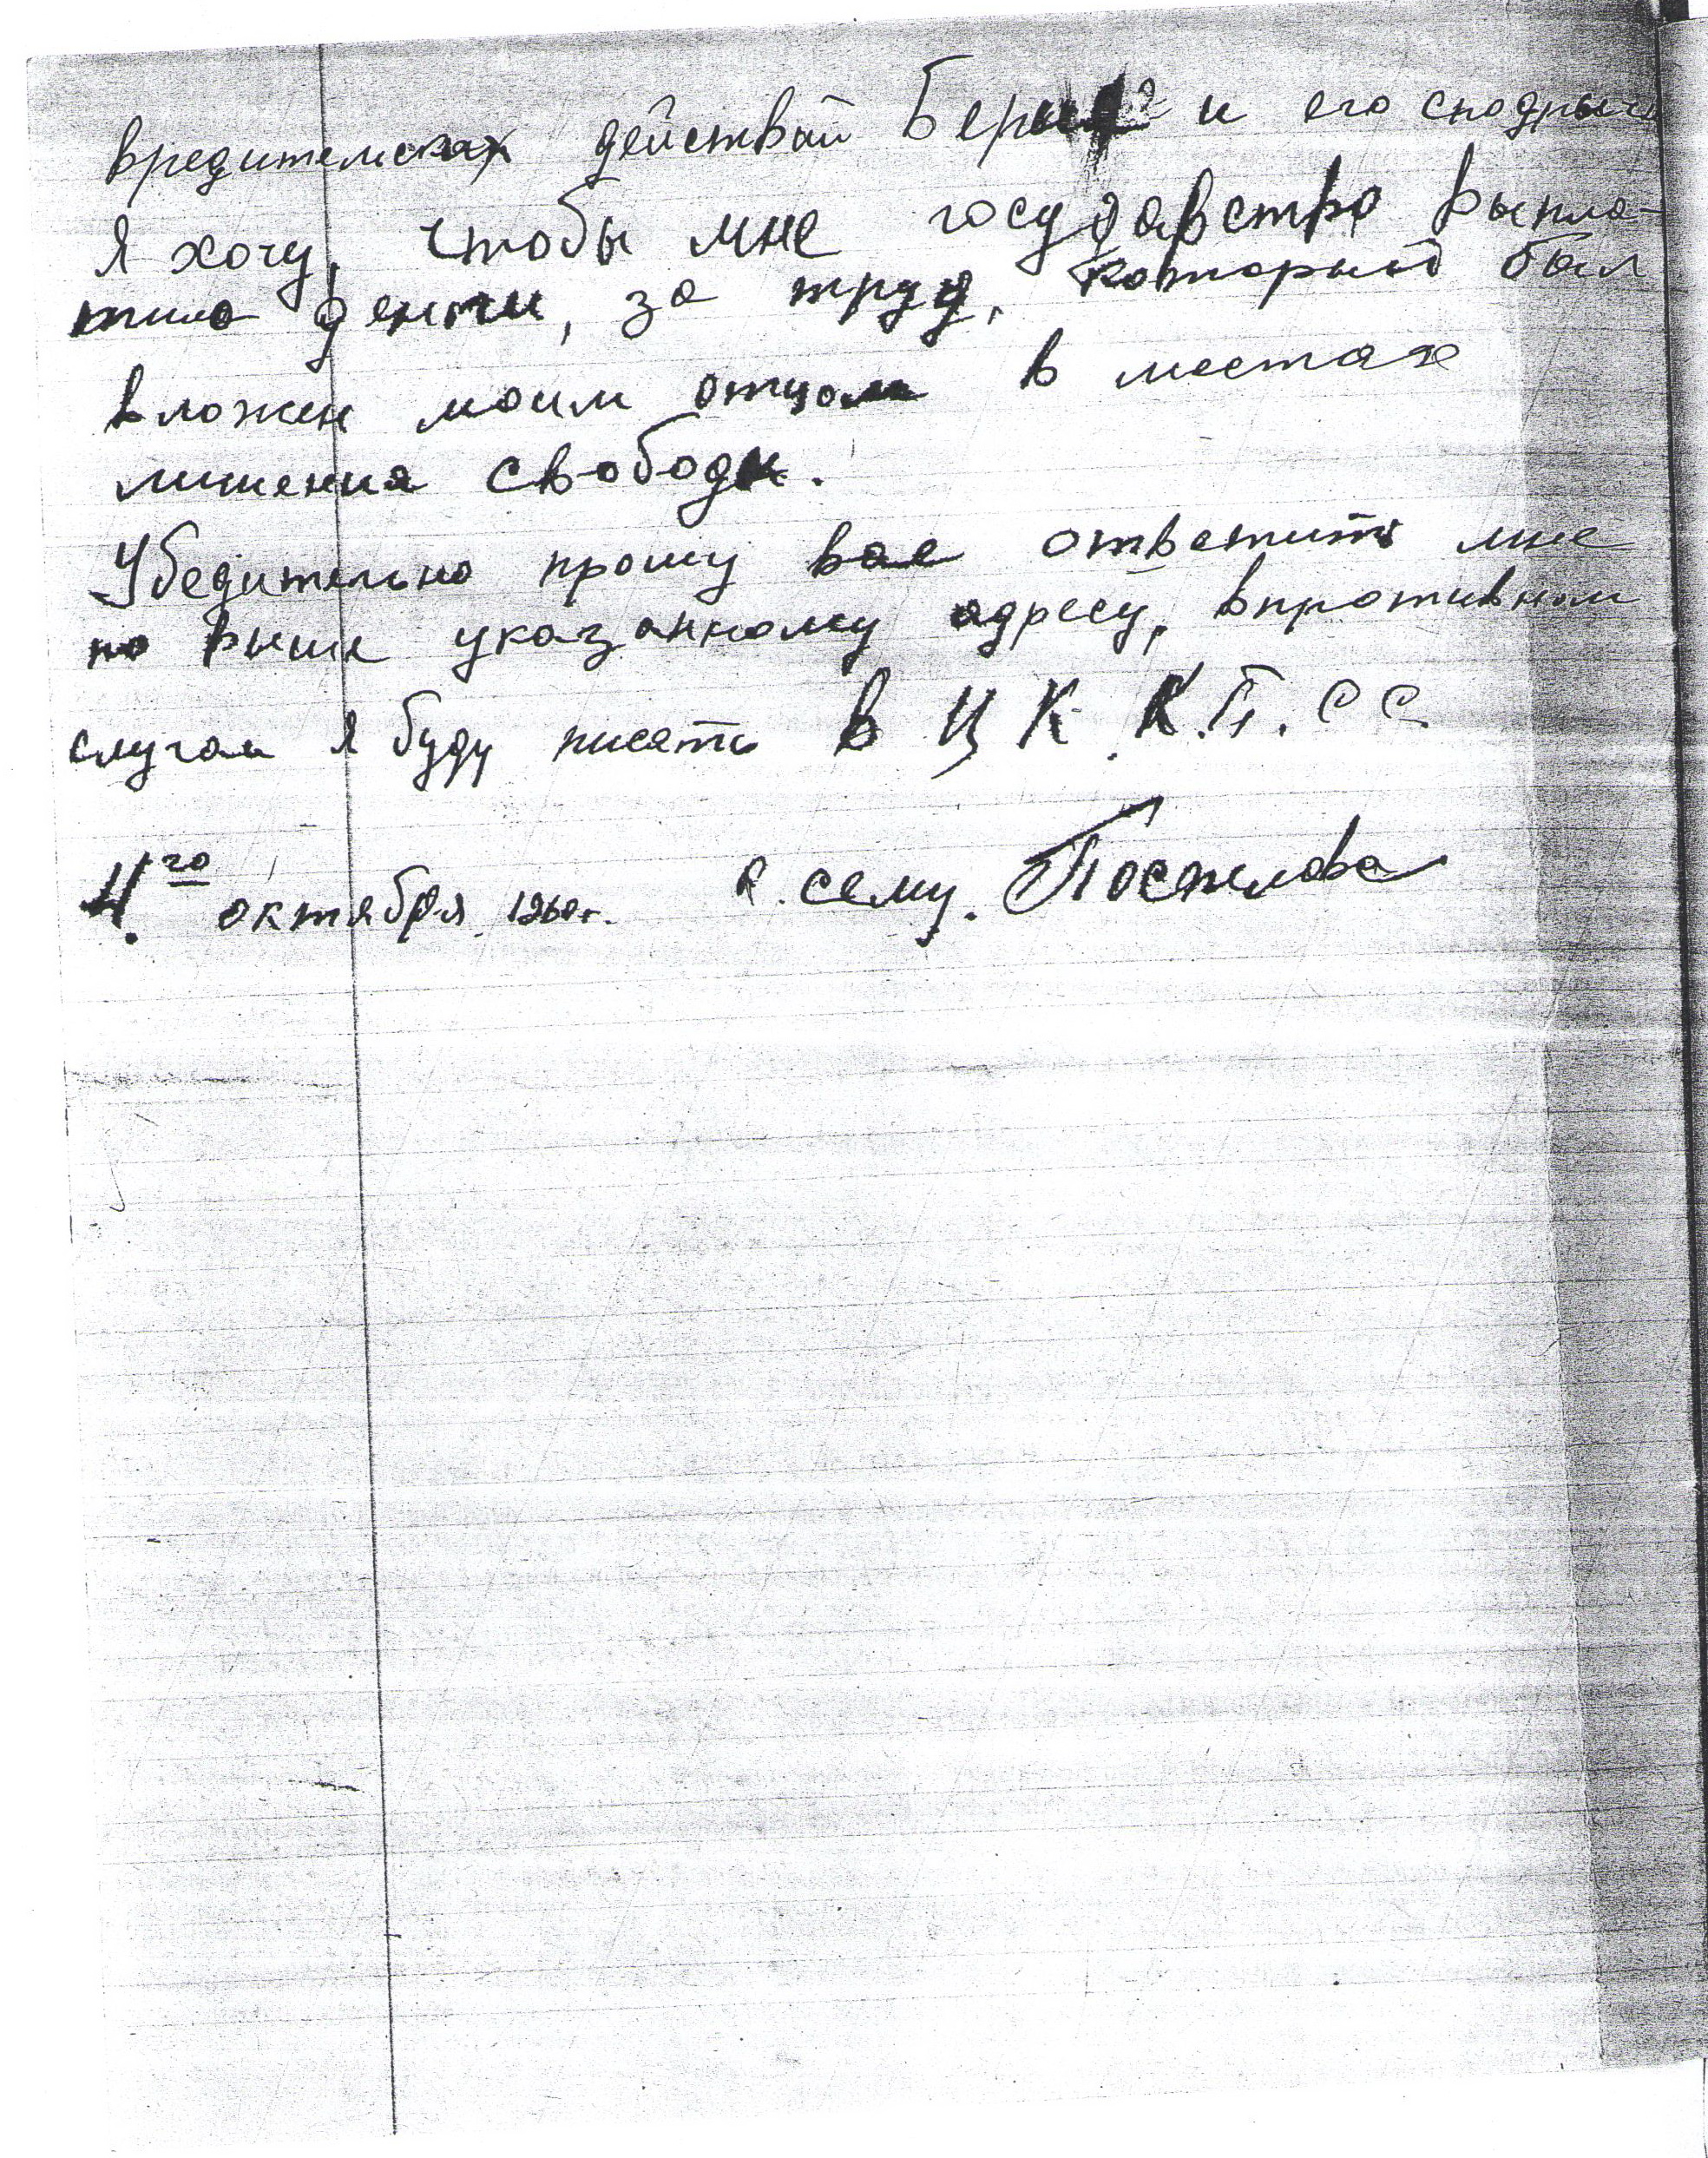 вредительских действий Берия и его сподручн
Я хочу, чтобы мне государство выпла-
тило деньги, за труд, который был
вложен моим отцом в местах
лишения свободы.
Убедительно прошу вас ответить мне
по выше указанному адресу, впротивном
случаи я буду писать в Ц К К.П.СС
4.го октября 1960г. К. сему. Поспелова